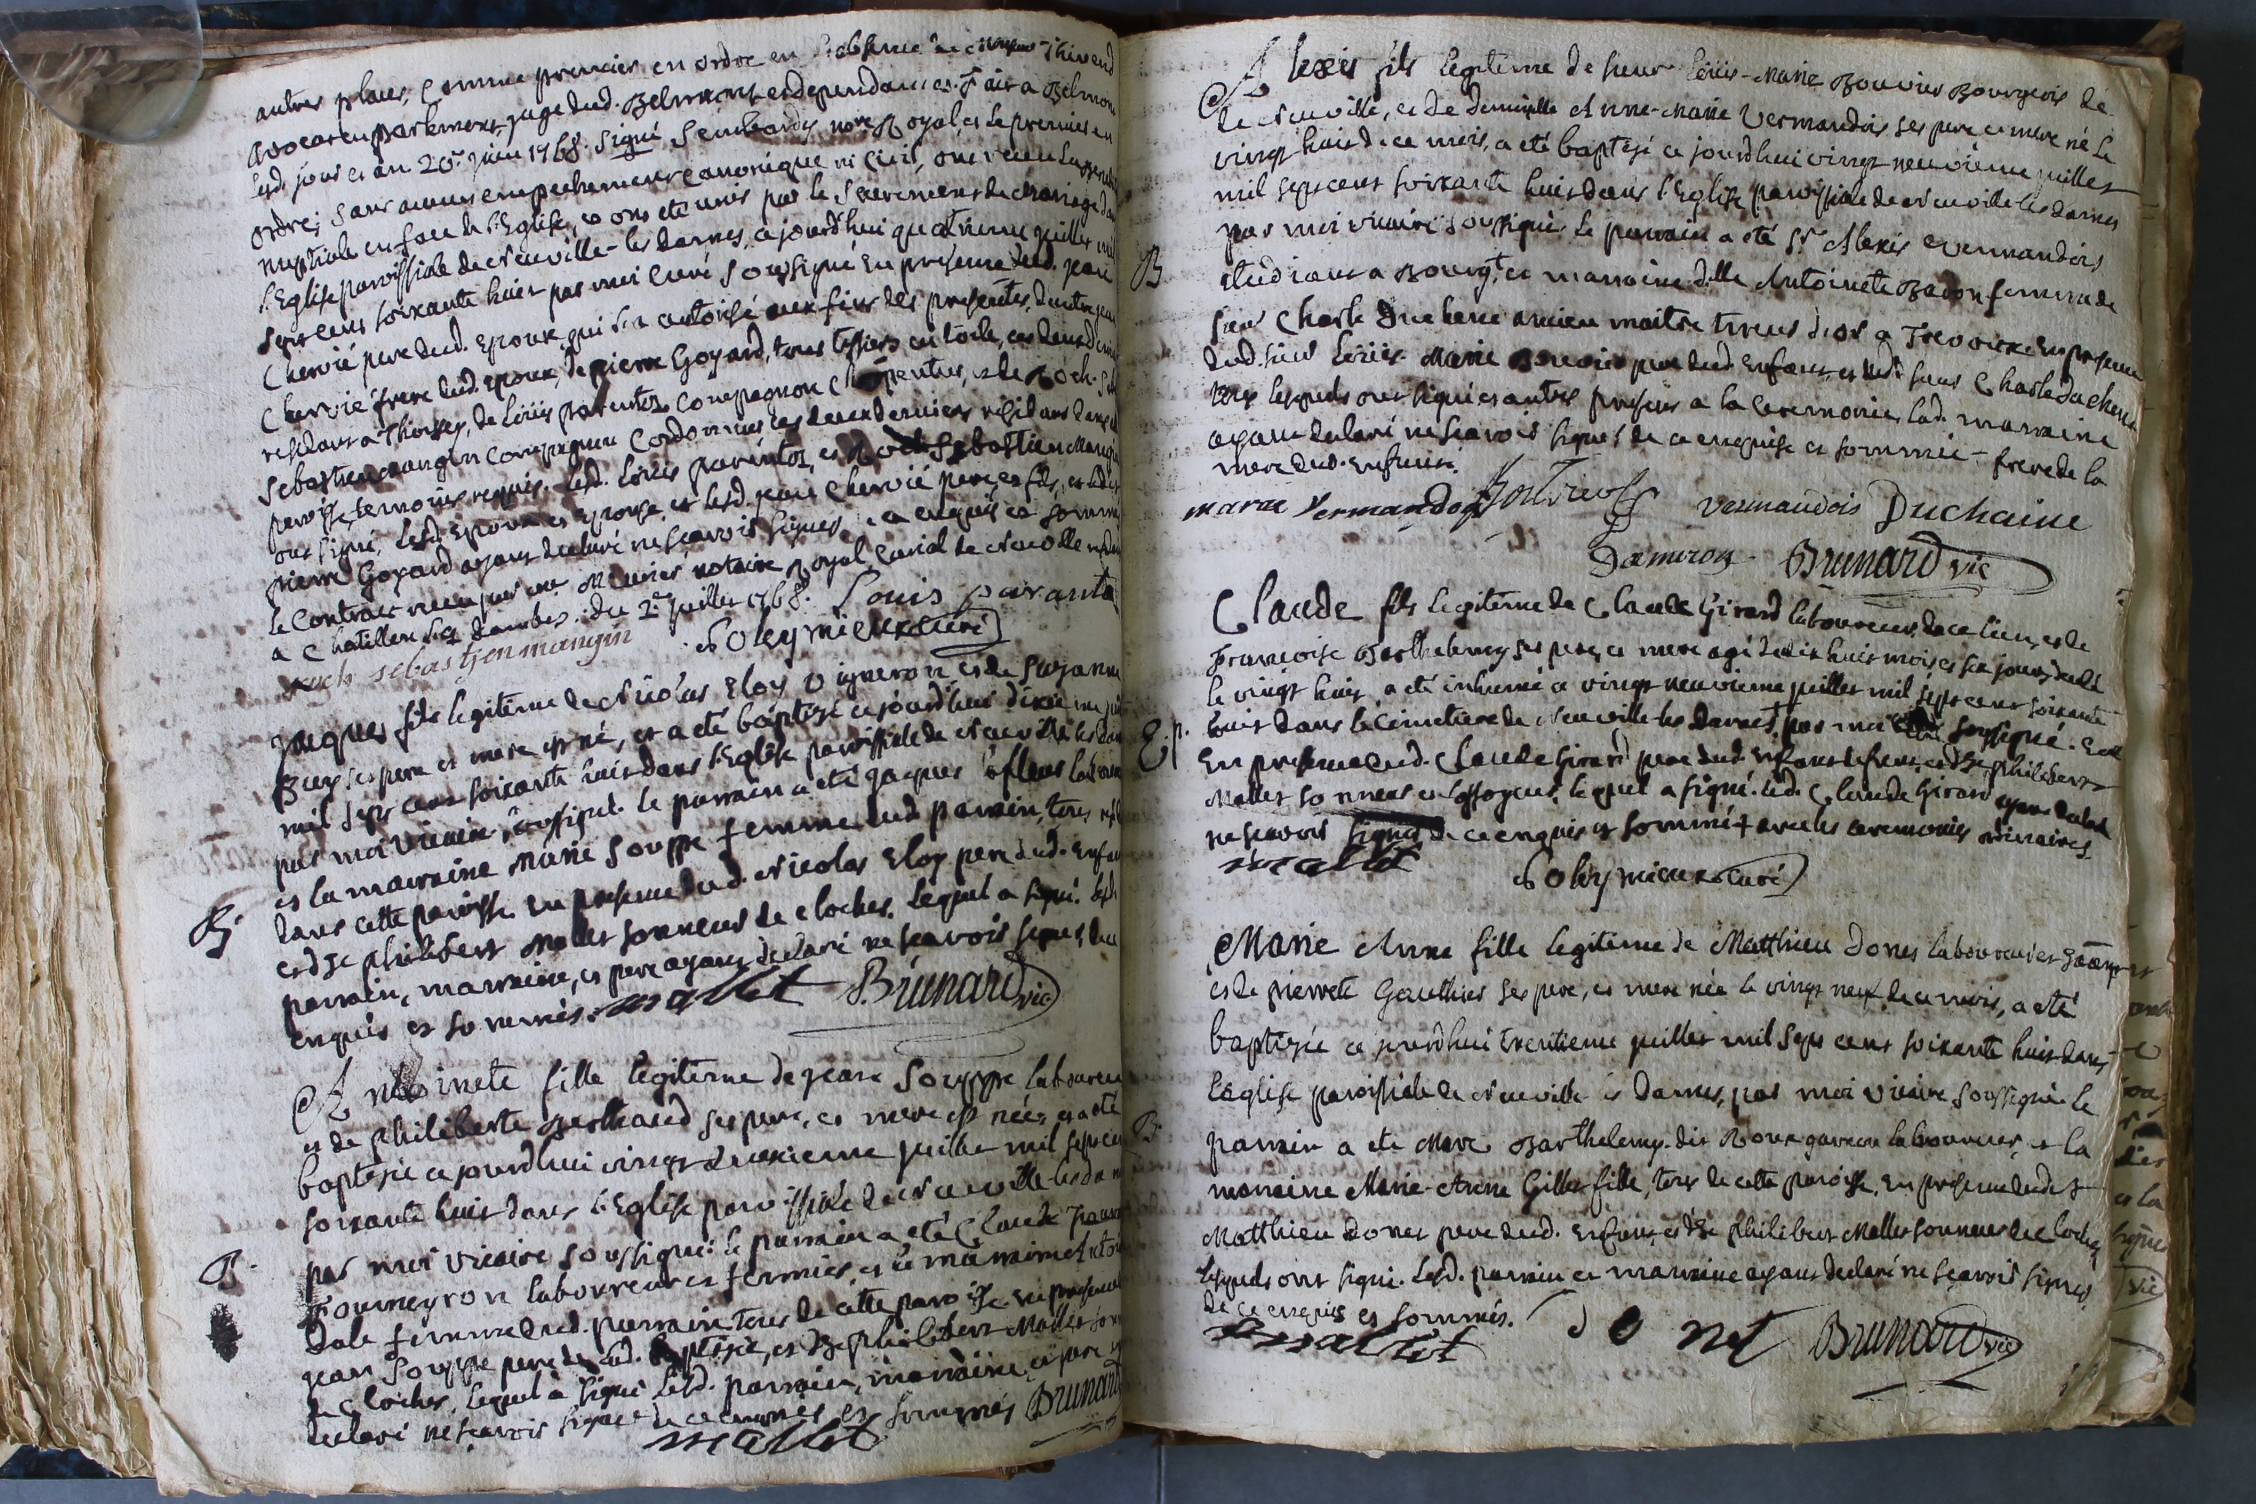 autres places, comme premier en ordre en l'absence de
avocat en parlement, juge dud. Belmont et dependances. Fait a Belmon
lesd. jour et an 20e juin 1768. signé nore Royal, et le premier en
ordre; sans aucun empechement canonique ni civil, ont recu la
nuptiale en face de l'Eglise, et ont eté unis par le Sacrement de Mariage dan
l'Eglise paroissiale de Neuville-les dames, ce jourd'hui quatrieme juillet mil
sept cent soixante huit par moi curé soussigné en presence dud. jean
Chervié pere dud. Epoux, qui l'a autorisé aux fins des presentes, d'autre jean
Chervié frere dud. epoux, de pierre Goyard, tous tissiers en toile, ces deux
residans a Thoissey, de Loüis parentos compagnon Charpentier, et de Roch-
Sebastien mangin compagnon Cordonnier ces deux derniers residans dans
paroisse, temoins requis. Lesd. Loüis parentos, et Roch Sebastien Mangin
ont signé, lesd. Epoux et Epouse, et lesd. jean Chervié pere, et fils, et led.
pierre Goyard ayant declaré ne scavoir signer, de ce enquis et sommé
le Contrat recu par me Meunier notaire Royal, Curial de Neuville
a Chatillon les dombes, du 2e juillet 1768. Louis paranto
roch sebastjen mangin Soleymieux curé
Jaques fils legitime de Nicolas Eloy vigneron, et de Suzanne
Buy ses pere et mere est né, et a eté baptisé ce jourd'hui dixie me juil
mil sept cent soixante huit dans l'Eglise paroissiale de Neuville les dam
par moi vicaire soussigné. le parrain a eté jaques
et la marraine Marie Souppe femme dud parrain, tous
dans cette paroisse. En presence dud. Nicolas Eloy pere dud. Enfan
et de philibert Mallet sonneur de cloches. lequel a signé. lesd.
parrain, marraine, et pere ayans declaré ne scavoir signer, de ce
enquis et sommés. mallet Brunard vic
B.
Antoinete fille legitime de jean Souppe laboureu
et de philiberte Berthaud ses pere, et mere est née, et a eté
baptisée ce jourd'hui vingt deuxieme juillet mil sept cen
soixante huit dans l'Eglise paroissiale de Neuville-les dam
par moi vicaire soussigné. le parrain a eté Claude
Fourneyron laboureur et fermier, et la marraine Antoi
Dole femme dud. parrain, tous de cette paroisse. En presence
jean Souppe pere de lad. baptisée, et de philibert Mallet son
de cloches, lequel a signé. lesd. parrain, marraine, et pere
declaré ne scavoir signer de ce enquis et sommés Brunard
B.
mallet
Alexis fils legitime de sieur Loüis-Marie Bouvier Bourgeois de
de Neuville, et de demoiselle Anne-Marie Vermandois ses pere et mere né le
vingt huit de ce mois, a eté baptisé ce jourd'hui vingt neuvieme juillet
mil sept cent soixante huit dans l'Eglise paroissiale de Neuville les dames
par moi vicaire soussigné. Le parrain a eté Sr. Alexis Vermandois
etudiant a Bourg, et marraine dlle Antoinete Badon femme de
sieur Charle Duchene ancien maitre tireur d'or a Trevoux. En presence
dud. sieur Loüis-Marie Bouvier pere dud. Enfant, et dud. sieur Charle Duchene
lesquels ont signé et autres presens a la ceremonie, lad. marraine
ayant declaré ne scavoir signer de ce enquise et sommée frere de la
mere dud. enfant.
B
marie Vermandois vermandois Duchaine
Damiron Brunard vic
Claude fils legitime de Claude Girard laboureur de ce lieu, et de
Francoise Barthelemy ses pere, et mere agé de dix huit mois et six jours, decedé
le vingt huit a eté inhumé ce vingt neuvieme juillet mil sept cent soixante
huit dans le cimetiere de Neuville les dames, par moi curé soussigné.
En presence dud. Claude Girard pere dud. Enfant defunt, et de philibert
Mallet sonneur et fossoyeur, lequel a signé. led. Claude Girard ayant declaré
ne scavoir signer de ce enquis et sommé + avec les ceremonies ordinaires.
mallet
Soleymieux curé
Marie Anne fille legitime de Matthieu Donet laboureur et
et de pierrete Gauthier ses pere, et mere née le vingt neuf de ce mois, a eté
baptisée ce jourd'hui trentieme juillet mil sept cent soixante huit dans
l'Eglise paroissiale de Neuville les dames, par moi vicaire soussigné. Le
parrain a eté Marc Barthelemy dit Roux garcon laboureur, et la
B.
marraine Marie-Anne Gillet fille, tous de cette paroisse. En presence dudit
Matthieu Donet pere dud. Enfant, et de philibert Mallet sonneur de cloches
lesquels ont signé. Lesd. parrain et marraine ayans declaré ne scavoir signer
de ce enquis et sommés.
mallet donet Brunard vic